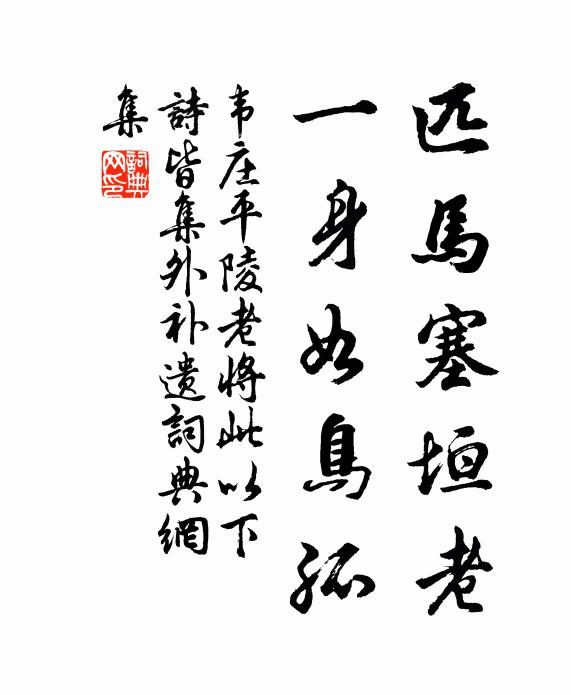 匹馬塞垣老
一身如鳥孤
韦庄平陵老將此以下
詩皆集外补遗詞典網
集
詞典
网印